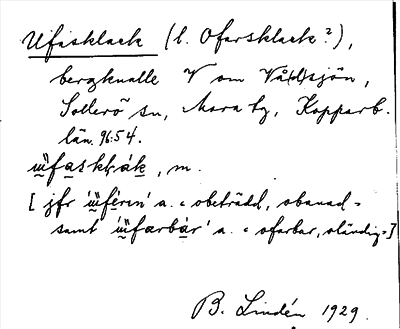 Ufasklack (l. Ofarsklack?),
bergknalle V om Vå(d)sjön,
Sollerö sn, Mora tg, Kopparb.
län. 96:54.
ṳ̈faskḷak, m.
[jfr 'ṳ̈férin' a. = obeträdd, obanad=
samt 'ṳ̈farbar' a. = ofarbar, oländig=]
B. Lindén 1929.